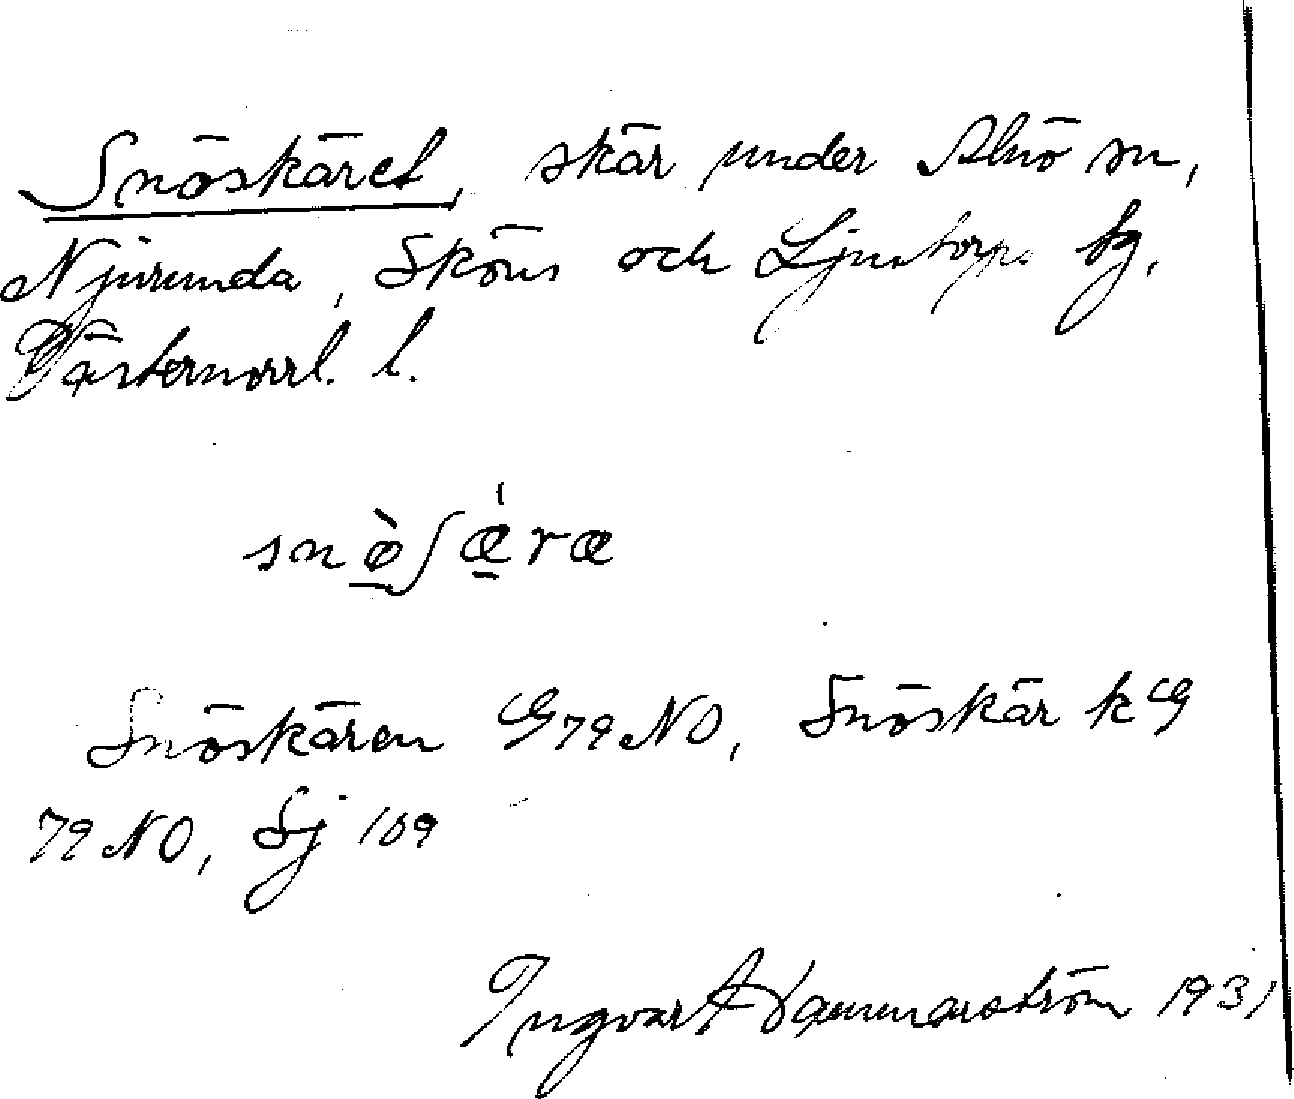 Snöskäret, skär under Alnö sn,
Njurunda, Sköns och Ljustorps tg,
Västernorrl. l.
snø̀ʃǽræ
Snöskären G 79 NO, Snöskär k G
79 NO, Sj 109
Ingvar Hammarström 1931